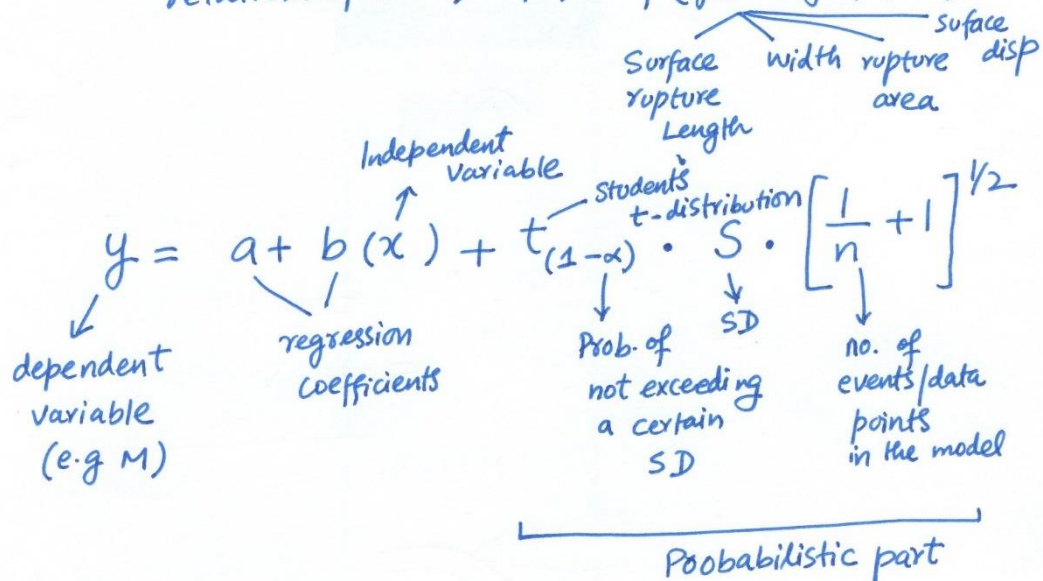 suface
disp
Surface
rupture
Length
width
rupture
area
Independent
Variable
Student's
t-distribution
y = a + b (x) + t(1-α) · S · [1/n + 1]^1/2
dependent
variable
(e.g M)
regression
coefficients
Prob. of
not exceeding
a certain
SD
SD
no. of
events/data
points
in the model
Poobabilistic part